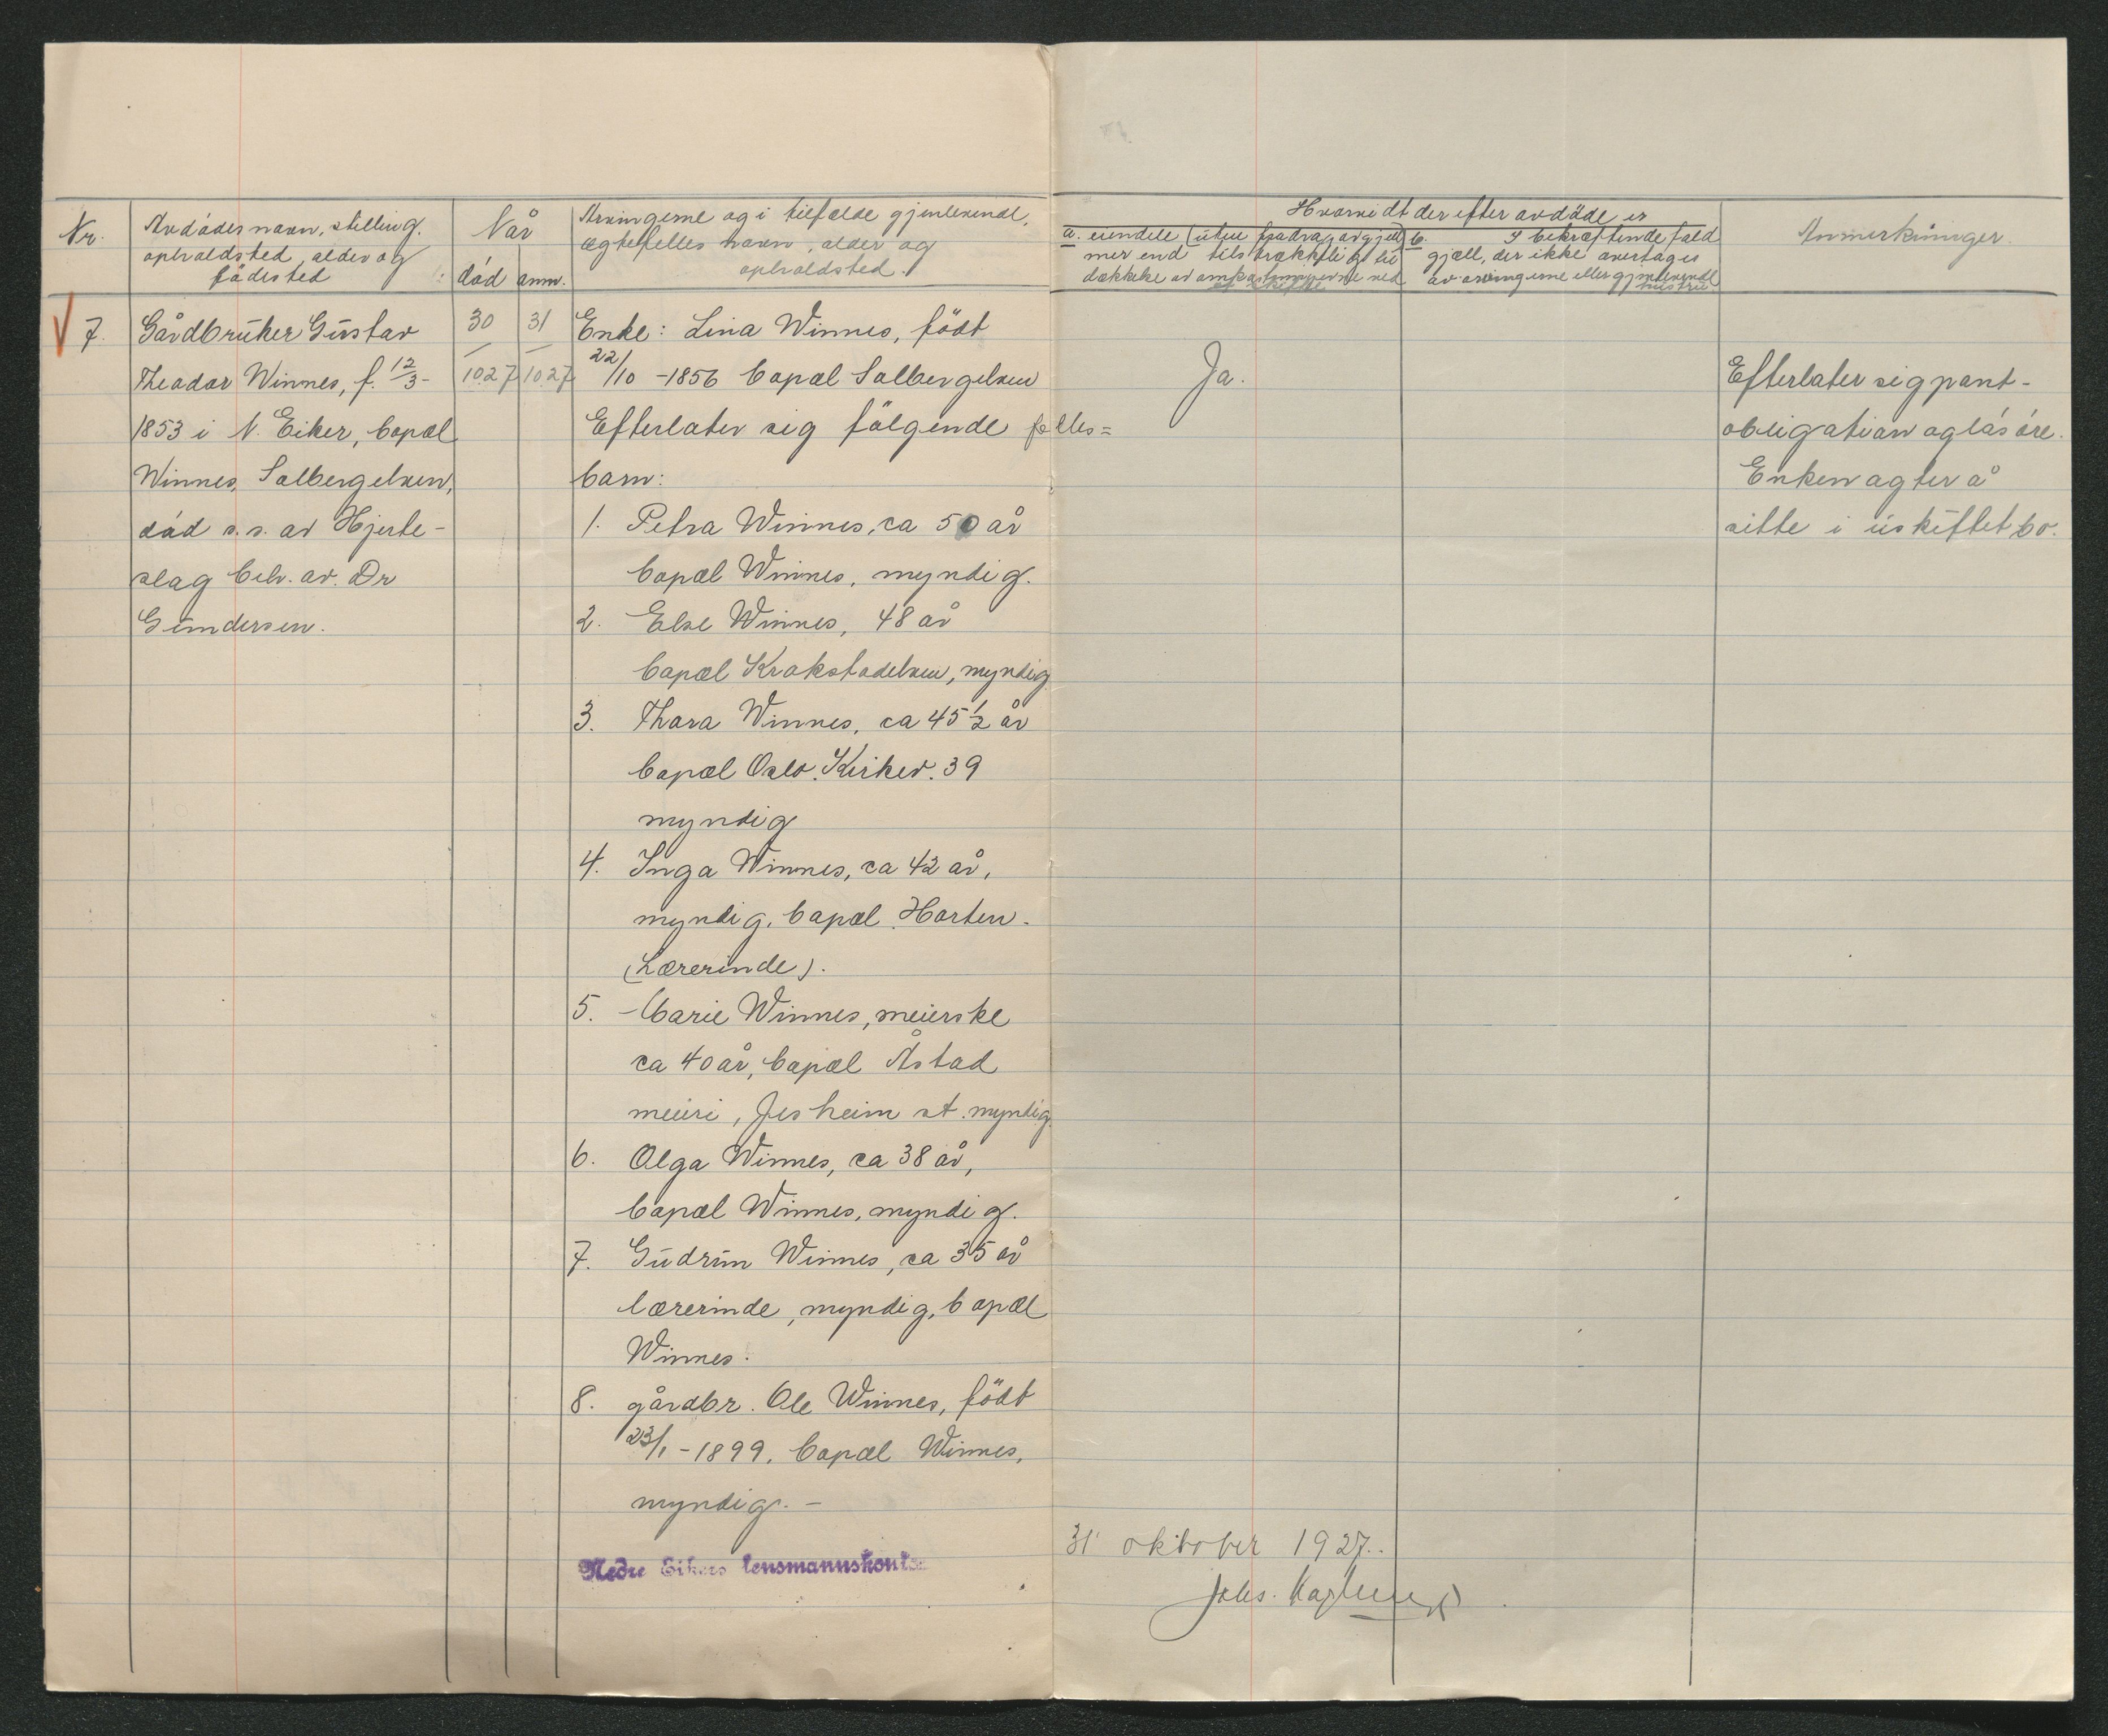 Nr.
Avdødes navn, stilling,
opholdsted, alder og
fødested
Når
død anm.
Arvingerne og i tilfælde gjenlevende
ægtefelles navn, alder og
opholdsted.
Hvorvidt der efter avdøde er
a. eiendele (uten fradrag av gjæld)
mer end tilstrækkelig til
dækkelse av omkostningerne ved
b. I bekræftende fald
gjæll, der ikke overtages
av arvingerne eller gjenlevende
Anmerkninger.
7.
Gårdbruker Gustav
Theodor Winnes, f. 12/3-
1853 i N. Eiker, bopæl
Winnes, Solbergelven,
død s.s. av Hjerte-
slag beh. av. Dr
Gundersen.
30 31
1027 1027
Enke: Lina Winnes, født
22/10 -1856 bopæl Solbergelven
Efterlater sig følgende felles=
barn:
1. Petra Winnes, ca 50 år
bopæl Winnes, myndig.
2. Else Winnes, 48 år
bopæl Krokstadelven, myndig
3. Thora Winnes, ca 45 1/2 år
bopæl Oslo. Kirkev. 39
myndig
4. Inga Winnes, ca 42 år,
myndig, bopæl Horten.
(Lærerinde).
5. Marie Winnes, meierske
ca 40 år, bopæl Åstad
meieri, Jesheim st. myndig
6. Olga Winnes, ca 38 år,
bopæl Winnes, myndig.
7. Gudrun Winnes, ca 35 år
lærerinde, myndig, bopæl
Winnes.
8. gårdbr. Ole Winnes, født
23/1 -1899, bopæl Winnes,
myndig. -
Nedre Eikers lensmannskontor
Ja.
Efterlater sig pant-
obligation og løsøre.
Enken agter å
sitte i uskiftet bo.
31 oktober 1927.
Johs.